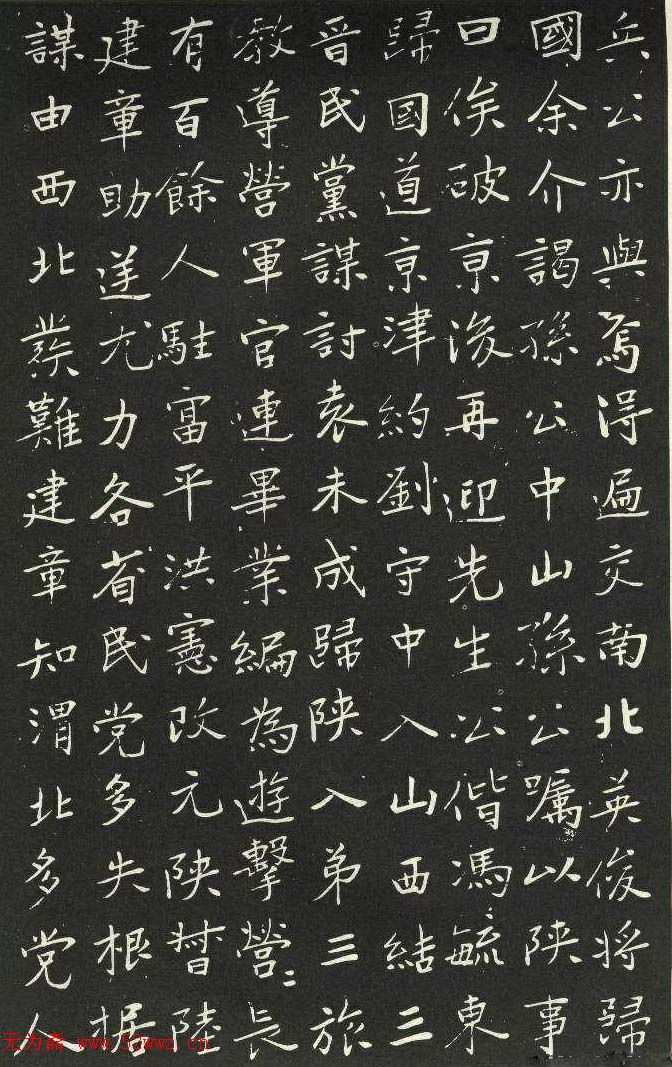 兵公亦與焉得遍交南北英俊将歸
國余介謁孫公中山孫公嘱以陕事
曰俟破京後再迎先生公偕馮毓東
歸國道京津約劉守中入山西結三
晋民黨謀討袁未成歸陕入弟三旅
教導營軍官連畢業編為遊擊營〻長
有百餘人駐富平洪憲改元陕督陸
建章助逆尤力各省民党多失根据
謀由西北發難建章知渭北多党人
无为斋 www.52wwz.cn